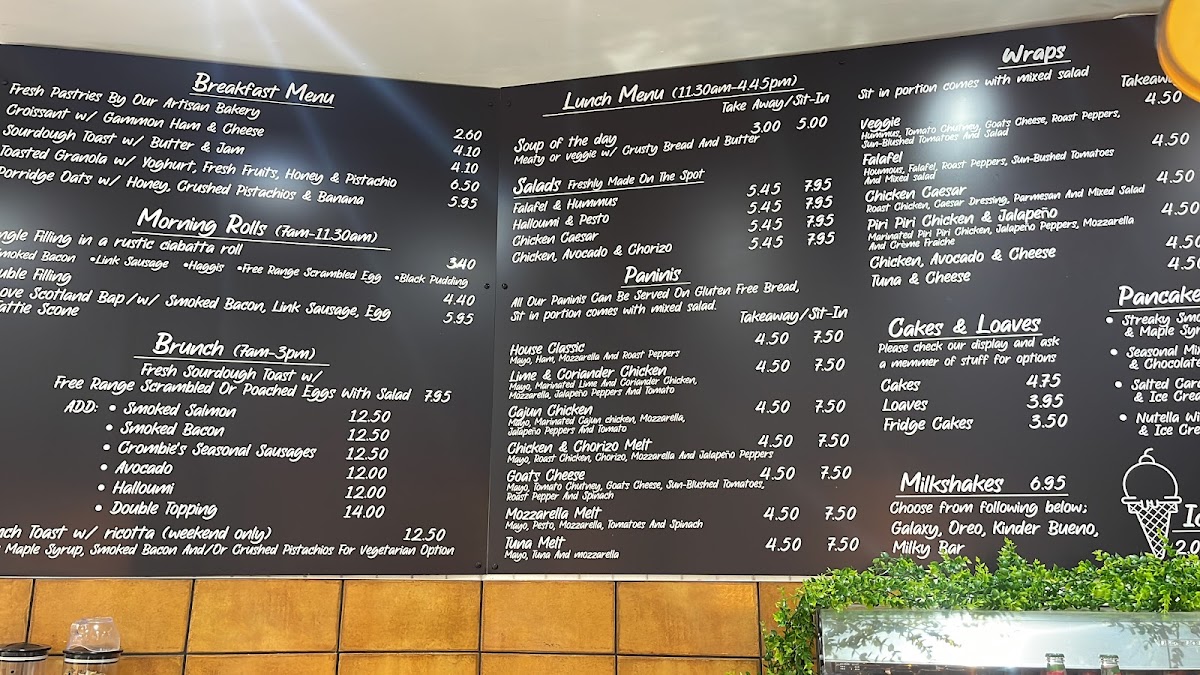 Breakfast Menu
Fresh Pastries By Our Artisan Bakery 2.60
Croissant w/ Gammon Ham & Cheese 4.10
Sourdough Toast w/ Butter & Jam 4.10
Toasted Granola w/ Yoghurt, Fresh Fruits, Honey & Pistachio 6.50
Porridge Oats w/ Honey, Crushed Pistachios & Banana 5.95
Morning Rolls (7am-11.30am)
ngle Filling in a rustic ciabatta roll 3.40
Smoked Bacon •Link Sausage •Haggis •Free Range Scrambled Egg •Black Pudding
uble Filling 4.40
ove Scotland Bap /w/ Smoked Bacon, Link Sausage, Egg 5.95
attie Scone
Brunch (7am-3pm)
Fresh Sourdough Toast w/
Free Range Scrambled Or Poached Eggs With Salad 7.95
ADD: • Smoked Salmon 12.50
• Smoked Bacon 12.50
• Crombie's Seasonal Sausages 12.50
• Avocado 12.00
• Halloumi 12.00
• Double Topping 14.00
nch Toast w/ ricotta (weekend only) 12.50
Maple Syrup, Smoked Bacon And/Or Crushed Pistachios For Vegetarian Option
Lunch Menu (11.30am-4.45pm)
Take Away/Sit-In
Soup of the day 3.00 5.00
Meaty or veggie w/ Crusty Bread And Butter
Salads Freshly Made On The Spot
Falafel & Hummus 5.45 7.95
Halloumi & Pesto 5.45 7.95
Chicken Caesar 5.45 7.95
Chicken, Avocado & Chorizo 5.45 7.95
Paninis
All Our Paninis Can Be Served On Gluten Free Bread,
Sit in portion comes with mixed salad.
Takeaway/Sit-In
House Classic 4.50 7.50
Mayo, Ham, Mozzarella And Roast Peppers
Lime & Coriander Chicken 4.50 7.50
Mayo, Marinated Lime And Coriander Chicken,
Mozzarella, Jalapeño Peppers And Tomato
Cajun Chicken 4.50 7.50
Mayo, Marinated Cajun chicken, Mozzarella,
Jalapeño Peppers And Tomato
Chicken & Chorizo Melt 4.50 7.50
Mayo, Roast Chicken, Chorizo, Mozzarella And Jalapeño Peppers
Goats Cheese 4.50 7.50
Mayo, Tomato Chutney, Goats Cheese, Sun-Blushed Tomatoes,
Roast Pepper And Spinach
Mozzarella Melt 4.50 7.50
Mayo, Pesto, Mozzarella, Tomatoes And Spinach
Tuna Melt 4.50 7.50
Mayo, Tuna And mozzarella
Wraps
Sit in portion comes with mixed salad
Takeaw
Veggie 4.50
Hummus, Tomato Chutney, Goats Cheese, Roast Peppers,
Sun-Blushed Tomatoes And Salad
Falafel 4.50
Houmous, Falafel, Roast Peppers, Sun-Bushed Tomatoes
And Mixed salad
Chicken Caesar 4.50
Roast Chicken, Caesar Dressing, Parmesan And Mixed Salad
Piri Piri Chicken & Jalapeño 4.50
Marinated Piri Piri Chicken, Jalapeño Peppers, Mozzarella
And Crème Fraiche
Chicken, Avocado & Cheese 4.50
Tuna & Cheese 4.50
Cakes & Loaves
Please check our display and ask
a memmer of stuff for options
Cakes 4.75
Loaves 3.95
Fridge Cakes 3.50
Milkshakes 6.95
Choose from following below;
Galaxy, Oreo, Kinder Bueno,
Milky Bar
Pancake
• Streaky Smo
& Maple Syr
• Seasonal Mi
& Chocolat
• Salted Car
& Ice Crea
• Nutella Wi
& Ice Cre
Ic
2.0